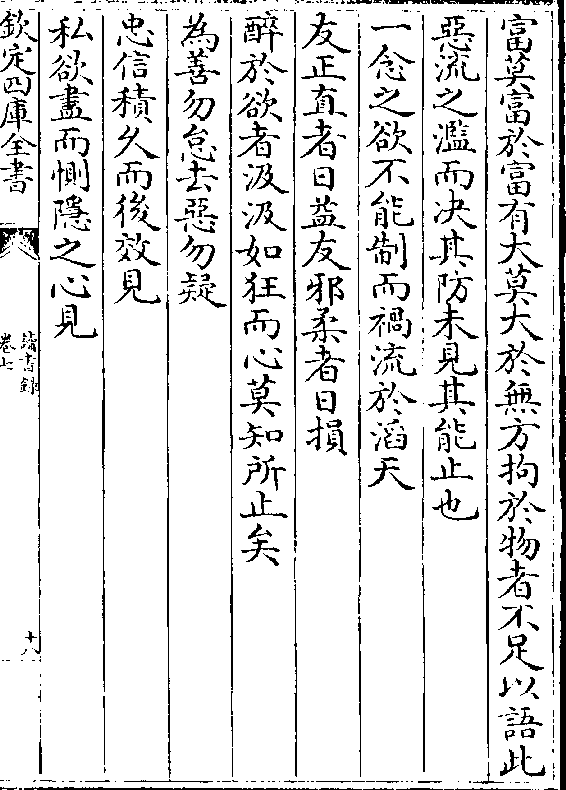 富莫富於富有大莫大於無方拘於物者不足以語此
惡流之濫而决其防未見其能止也
一念之欲不能制而禍流於滔天
友正直者日益友邪柔者日損
醉於欲者汲汲如狂而心莫知所止矣
為善勿怠去惡勿疑
忠信積久而後效見
私欲盡而惻隱之心見
欽定四庫全書
讀書錄
卷七
十八